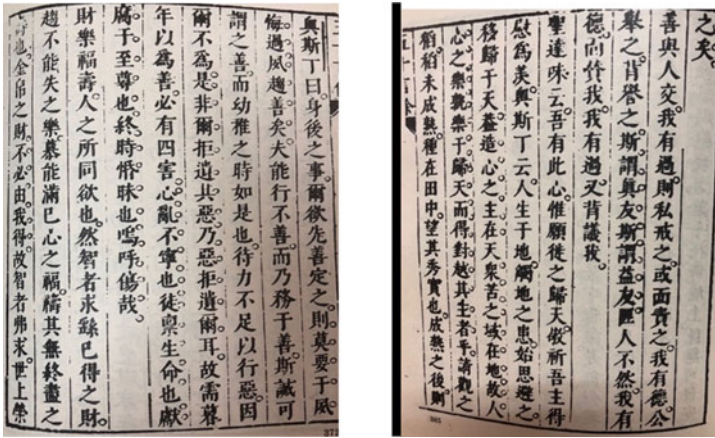 之矣。
善與人交。我有過則私戒之。或面責之。我有德。公
舉之。背譽之。斯謂真友。斯謂益友。匪人不然。我有
德。向贊我。我有過。又背議我。
聖達味云。吾有此心。惟願徙之歸天。儆祈吾主得
慰為美。奧斯丁云。人生于地。觸地之患。始思避之。
移歸于天。益造心之主在天。衆苦之域在地。故人
心之樂。孰樂于歸天。而得對越其主者乎。請觀之
稻。稻未成熟。種在田中。望其秀實也。成熟之後。則
365
奧斯丁曰。身後之事。爾欲先善定之。則莫要于夙
悔過。夙趨善矣。夫能行不善。而乃務于善。斯誠可
謂之善。而幼稚之時如是也。待力不足以行惡。因
爾不爲。是非爾拒遣其惡。乃惡拒遣爾耳。故需暮
年以爲善。必有四害。心亂不寧也。徒稟生命也。獻
腐于至尊也。終時惛昧也。嗚呼傷哉。
財樂福壽。人之所同欲也。然智者求錄已得之財。
趨不能失之樂。慕能滿已心之福。禱其無終盡之
壽也。金帛之財。不必由我得。故智者弗求世上榮
372